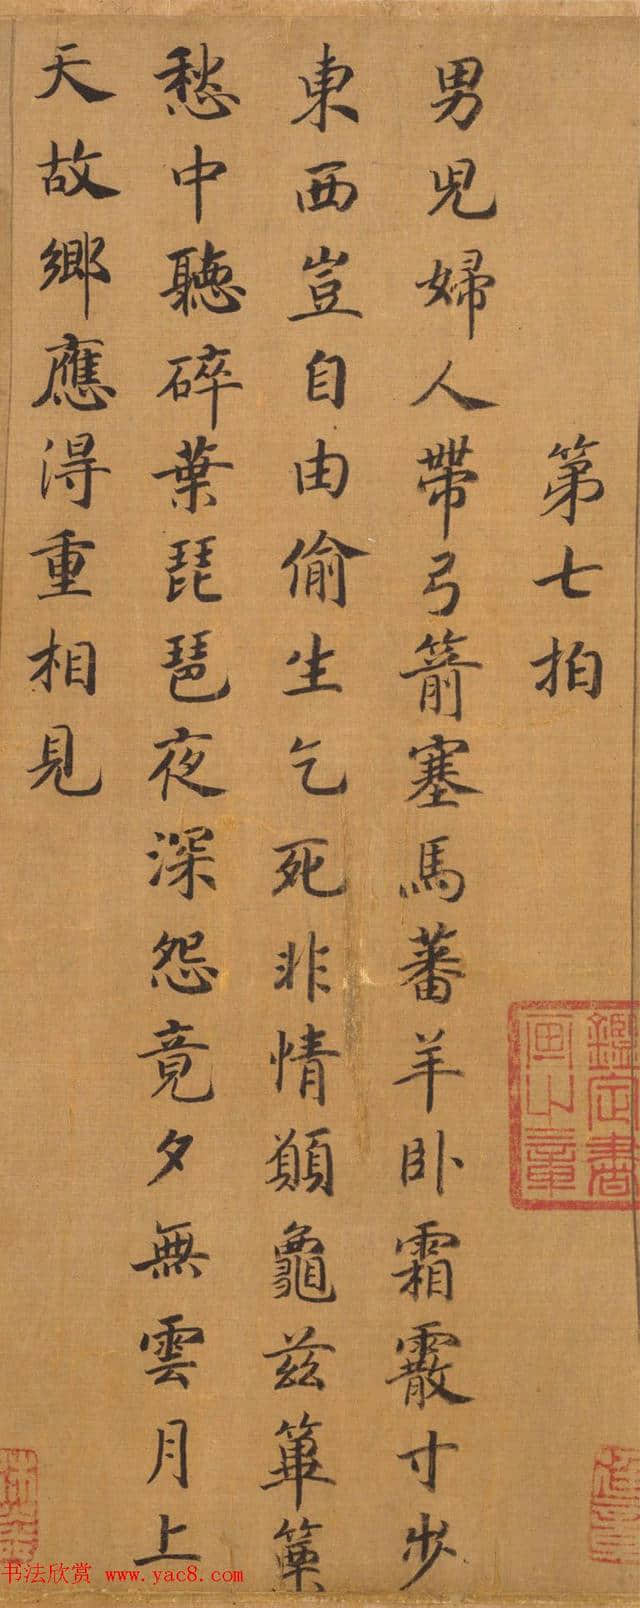 第七拍
男兒婦人帶弓箭塞馬蕃羊卧霜霰寸步
東西豈自由偷生乞死非情願龜茲篳篥
愁中聽碎葉琵琶夜深怨竟夕無雲月上
天故鄉應得重相見
鑑定書
画之章
书法欣赏 www.yac8.com